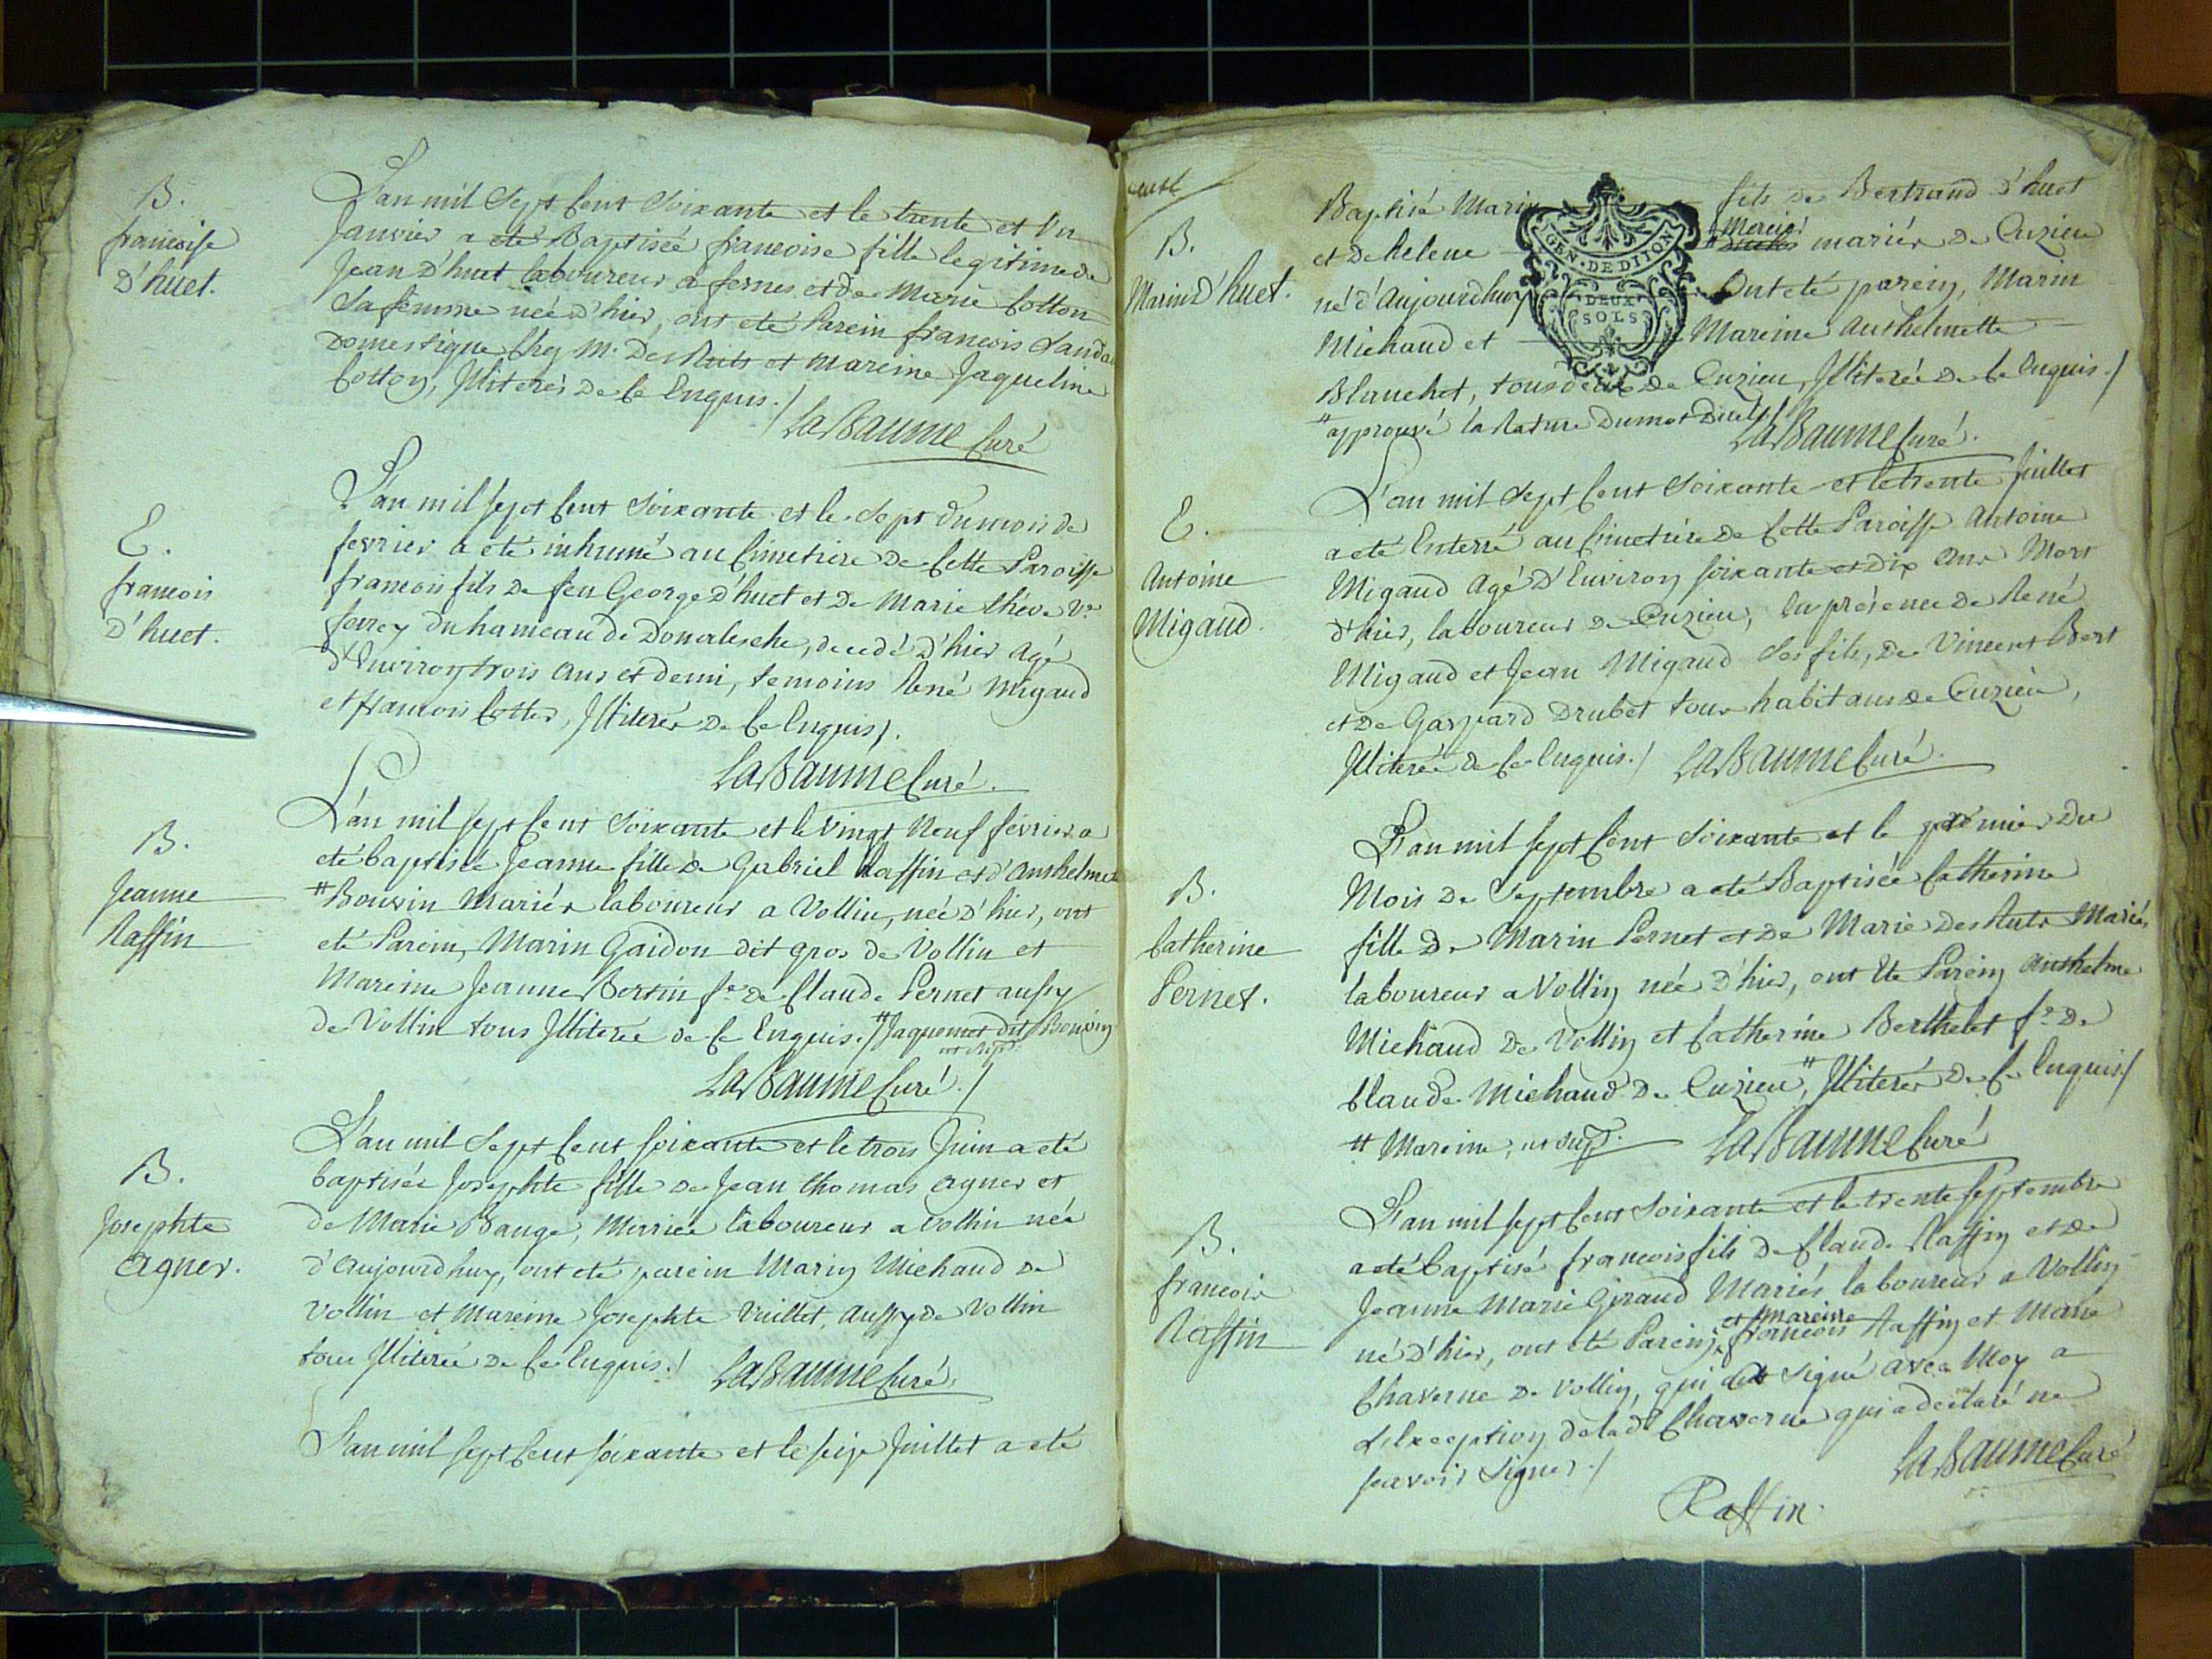 B.
francoise
D'huet.
L'an mil Sept Cent Soixante et le trente et Un
Janvier a eté Baptisée francoise fille legitime de
Jean D'huet laboureur a fernes et de Marie Cotton
Sa femme née d'hier, ont eté Parein francois
Domestique chez M. Des Ruts et Mareine Jaqueline
Cotton, Illiterés De Ce Enquis./
LaBaume Curé
E.
francois
D'huet.
L'an mil sept Cent Soixante et le Sept du mois de
fevrier a eté inhumé au Cimetiere De Cette Paroisse
francois fils De feu George D'huet et De Marie
du hameau de decedé D'hier Agé
D'Environ trois Ans et Demi, temoins René Migaud
et francois Cotter, Illiterés De Ce Enquis/.
LaBaume Curé.
B.
Jeanne
Raffin
L'an mil sept Cent Soixante et le Vingt Neuf février a
eté baptisée Jeanne fille De Gabriel Raffin et d'Anthelmet
# Bouvin Mariés laboureur a Vollin, née D'hier, ont
eté Parein, Marin Gaidon dit gros de Vollin et
Mareine Jeanne Bertin fe. de Claude Pernet aussy
de Vollin tous Illiterés de Ce Enquis./ # Jaquemet dit Bouvin
LaBaume Curé./
B.
Josephte
Agner.
L'an mil Sept Cent soixante et le trois Juin a eté
baptisée Josephte fille De Jean thomas Agner et
de Marie Bauge, Mariés laboureur a Vollin née
d'Aujourdhuy, ont eté parein Marin Michaud De
Vollin et Mareine Josephte Vuillet, Aussy de Vollin
tous Illiterés De Ce Enquis./ LaBaume Curé.
L'an mil sept Cent soixante et le seize Juillet a eté
B.
Marin D'huet.
Baptisé Marin fils De Bertrand D'huet
et De helene # Mercier mariés De Cuzieu
né d'Aujourdhuy Ont eté parein, Marin
Michaud et Mareine Anthelmette
Blanchet, tous deux De Cuzieu, Illiterés De Ce Enquis./
# approuvé la Rature Du mot Duet/
LaBaume Curé.
GEN. DE DIJON
DEUX
SOLS
E.
Antoine
Migaud.
L'an mil Sept Cent Soixante et le trente Juillet
a eté Enterré au Cimetiere De Cette Paroisse Antoine
Migaud Agé D'Environ soixante et dix Ans Mort
d'hier, laboureur De Cuzieu, En présence De René
Migaud et Jean Migaud Ses fils, De Vincent Bert
et De Gaspard Drubet tous habitans De Cuzieu,
Illiterés De Ce Enquis./ LaBaume Curé.
B.
Catherine
Pernet.
L'an mil sept Cent Soixante et le premier Du
Mois De Septembre a eté Baptisée Catherine
fille De Marin Pernet et De Marie Des Ruts Mariés
laboureur a Vollin née D'hier, ont Eté Parein Anthelme
Michaud De Vollin et Catherine Berthelet fe. De
Claude Michaud De Cuzieu, # Illiterés De Ce Enquis/
# Mareine, ut sup. LaBaume Curé
B.
francois
Raffin
L'an mil sept Cent Soixante et le trente septembre
a eté baptisé francois fils De Claude Raffin et De
Jeanne Marie Giraud Mariés laboureur a Vollin
né D'hier, ont eté Parein et Mareine francois Raffin et Marie
Chaverne De Vollin, qui ont Signé avec Moy a
L'Exception de lad. Chaverne qui a déclaré ne
sçavoir Signer./ LaBaume Curé
Raffin.